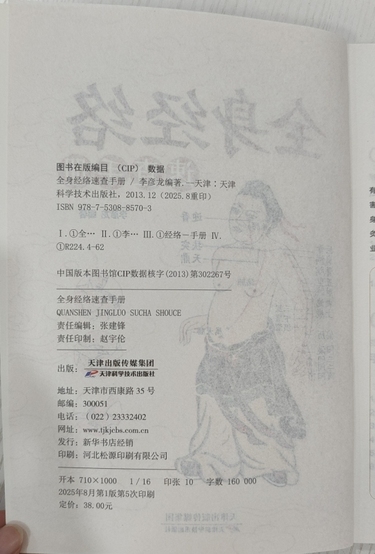 图书在版编目 (CIP) 数据
全身经络速查手册 / 李彦龙编著. —天津：天津
科学技术出版社, 2013.12 (2025.8重印)
ISBN 978-7-5308-8570-3
Ⅰ.①全… Ⅱ.①李… Ⅲ.①经络－手册 Ⅳ.
①R224.4-62
中国版本图书馆CIP数据核字(2013)第302267号
全身经络速查手册
QUANSHEN JINGLUO SUCHA SHOUCE
责任编辑：张建锋
责任印制：赵宇伦
出版：天津出版传媒集团
天津科学技术出版社
地址：天津市西康路 35 号
邮编：300051
电话：(022) 23332402
网址：www.tjkjcbs.com.cn
发行：新华书店经销
印刷：河北松源印刷有限公司
开本 710×1000 1/16 印张 10 字数 160 000
2025年8月第1版第5次印刷
定价：38.00元
全身经络
天津出版传媒集团